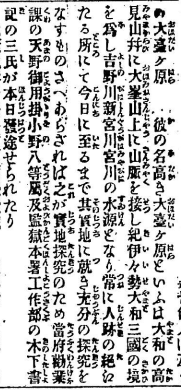 の大臺ケ原　彼の名高き大臺ケ原といふは大和の高
見山并に大峯山上に山脈を接し紀伊々勢大和三國の境
を爲し吉野川新宮川宮川の水源となり常に人跡の絶ゐ
たる所にて今日に至るまで其實地に就き充分の探究を
なすものさへあらざれば之が實地探究のため當府勸業
課の天野御用掛小野八等屬及監獄本署工作部の木下書
記の三氏が本日發途せられたり